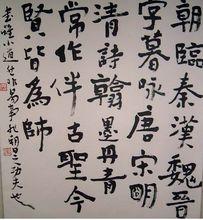 朝臨秦漢魏晉
字暮咏唐宋明
清詩翰墨丹青
常作伴古聖今
賢皆為師
書雖小道